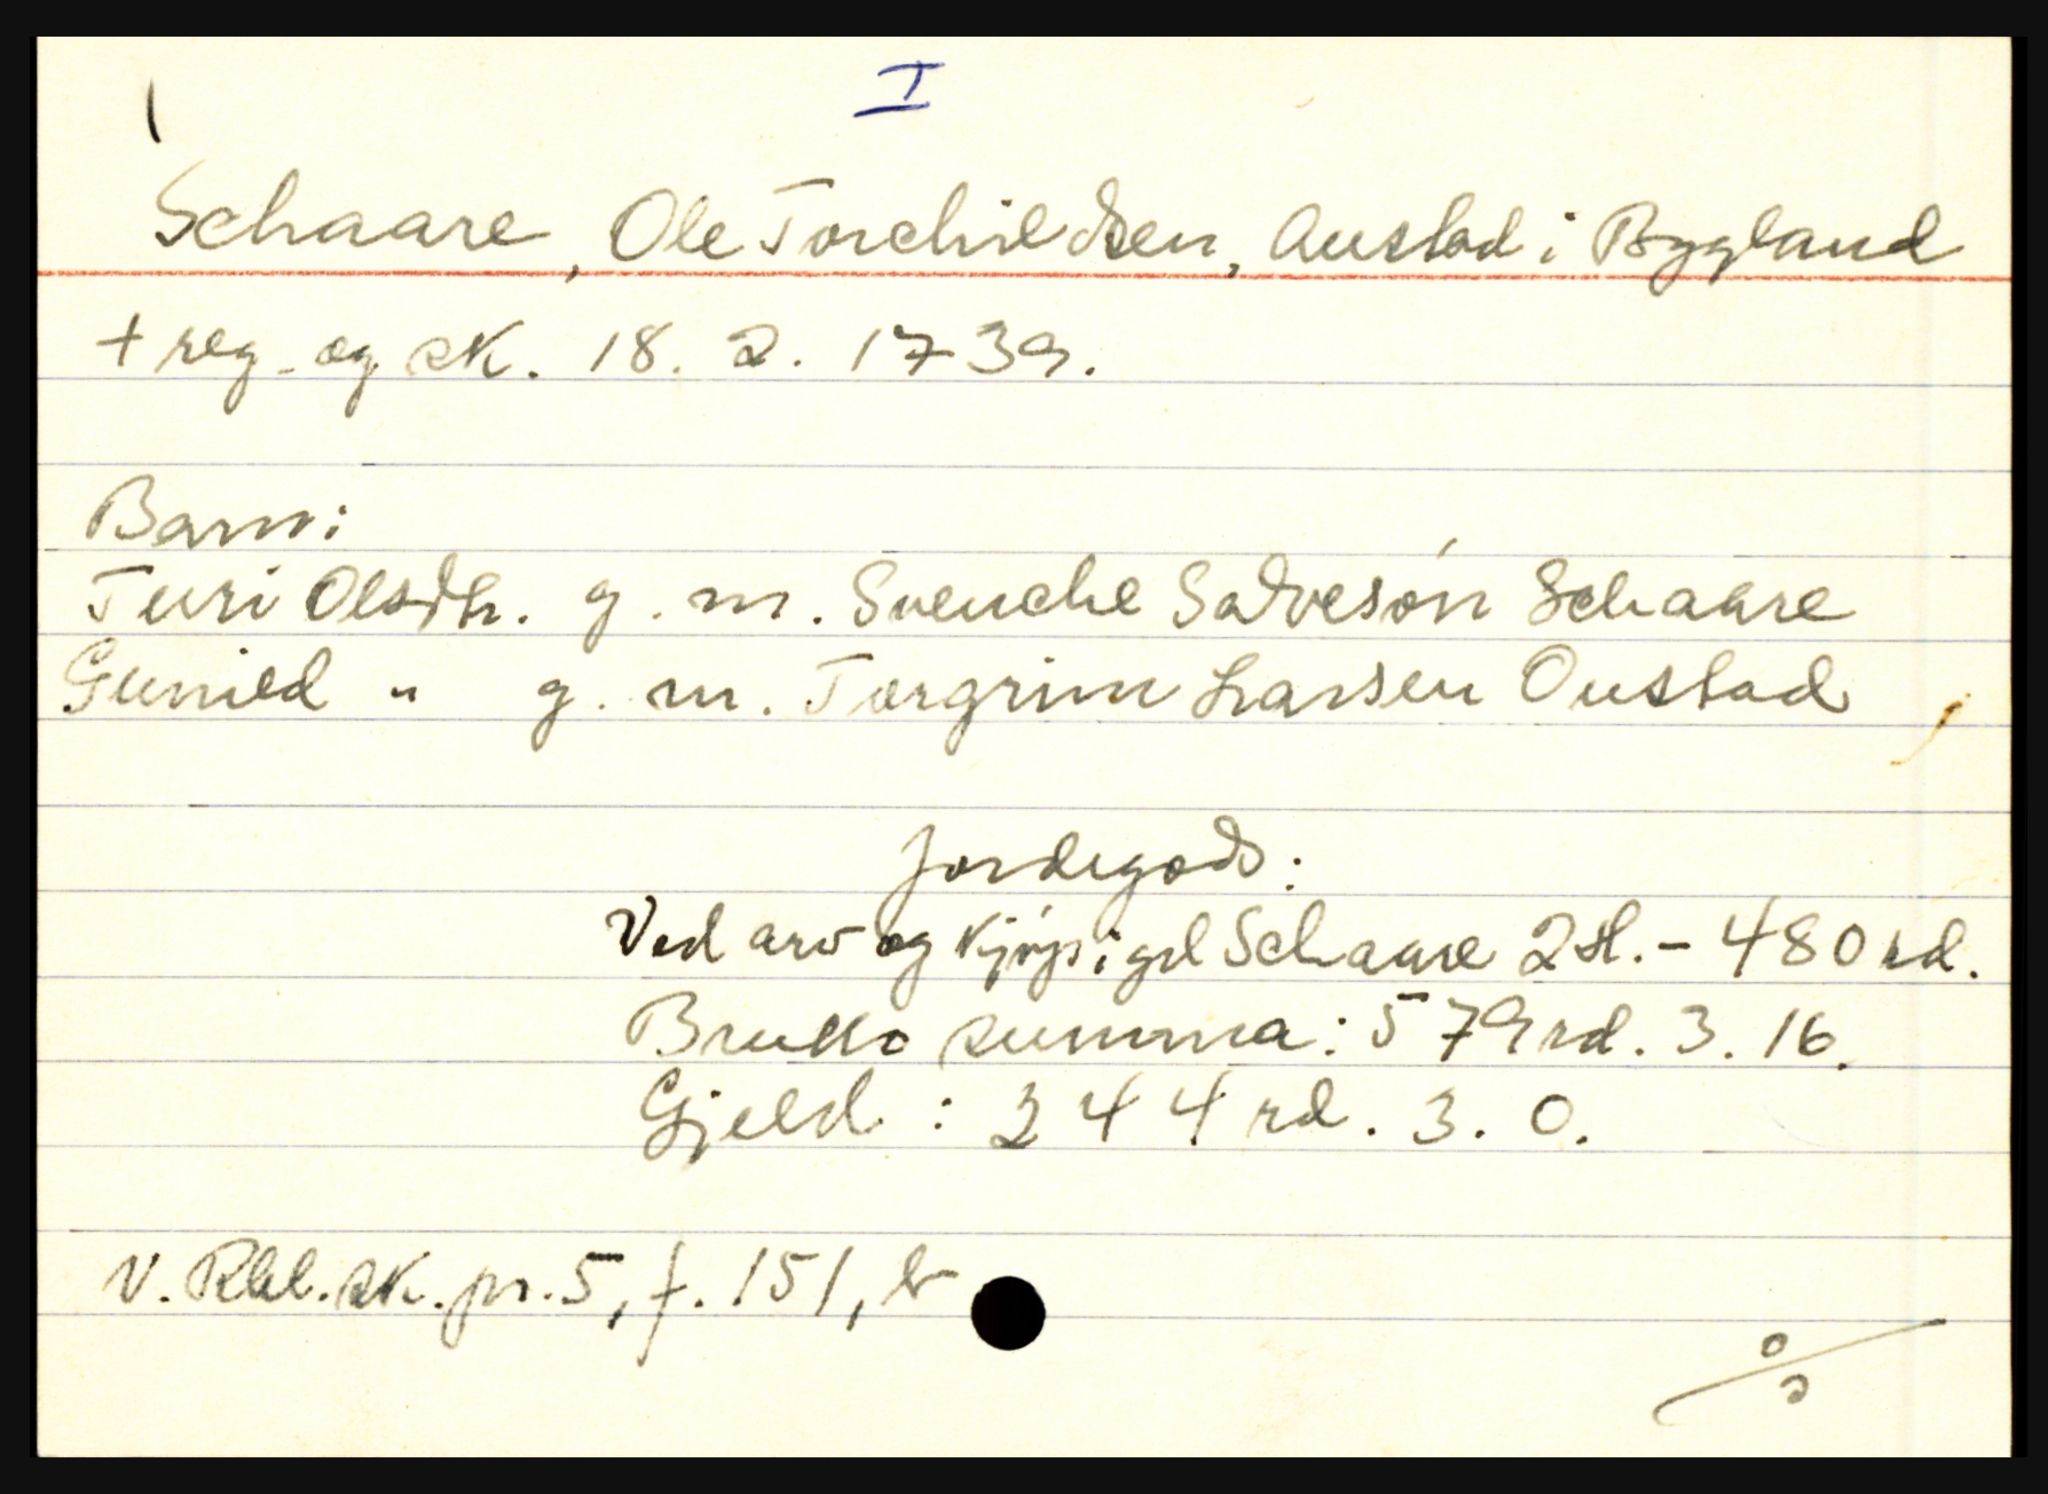 I
Schaare, Ole Torchildsen, Austad i Bygland
+ reg. og sk. 18. 2. 1739.
Barn:
Turi Olsdtr. g. m. Svenche Salvesøn Schaare
Gunild " g. m. Torgrim Larsen Oustad
Jordegods:
Ved arv og kjøp i gd Schaare 2 hl. - 480 rd.
Brutto summa: 579 rd. 3. 16.
Gjeld : 244 rd. 3. 0.
V. Rbl. sk. pr. 5, f. 151, b